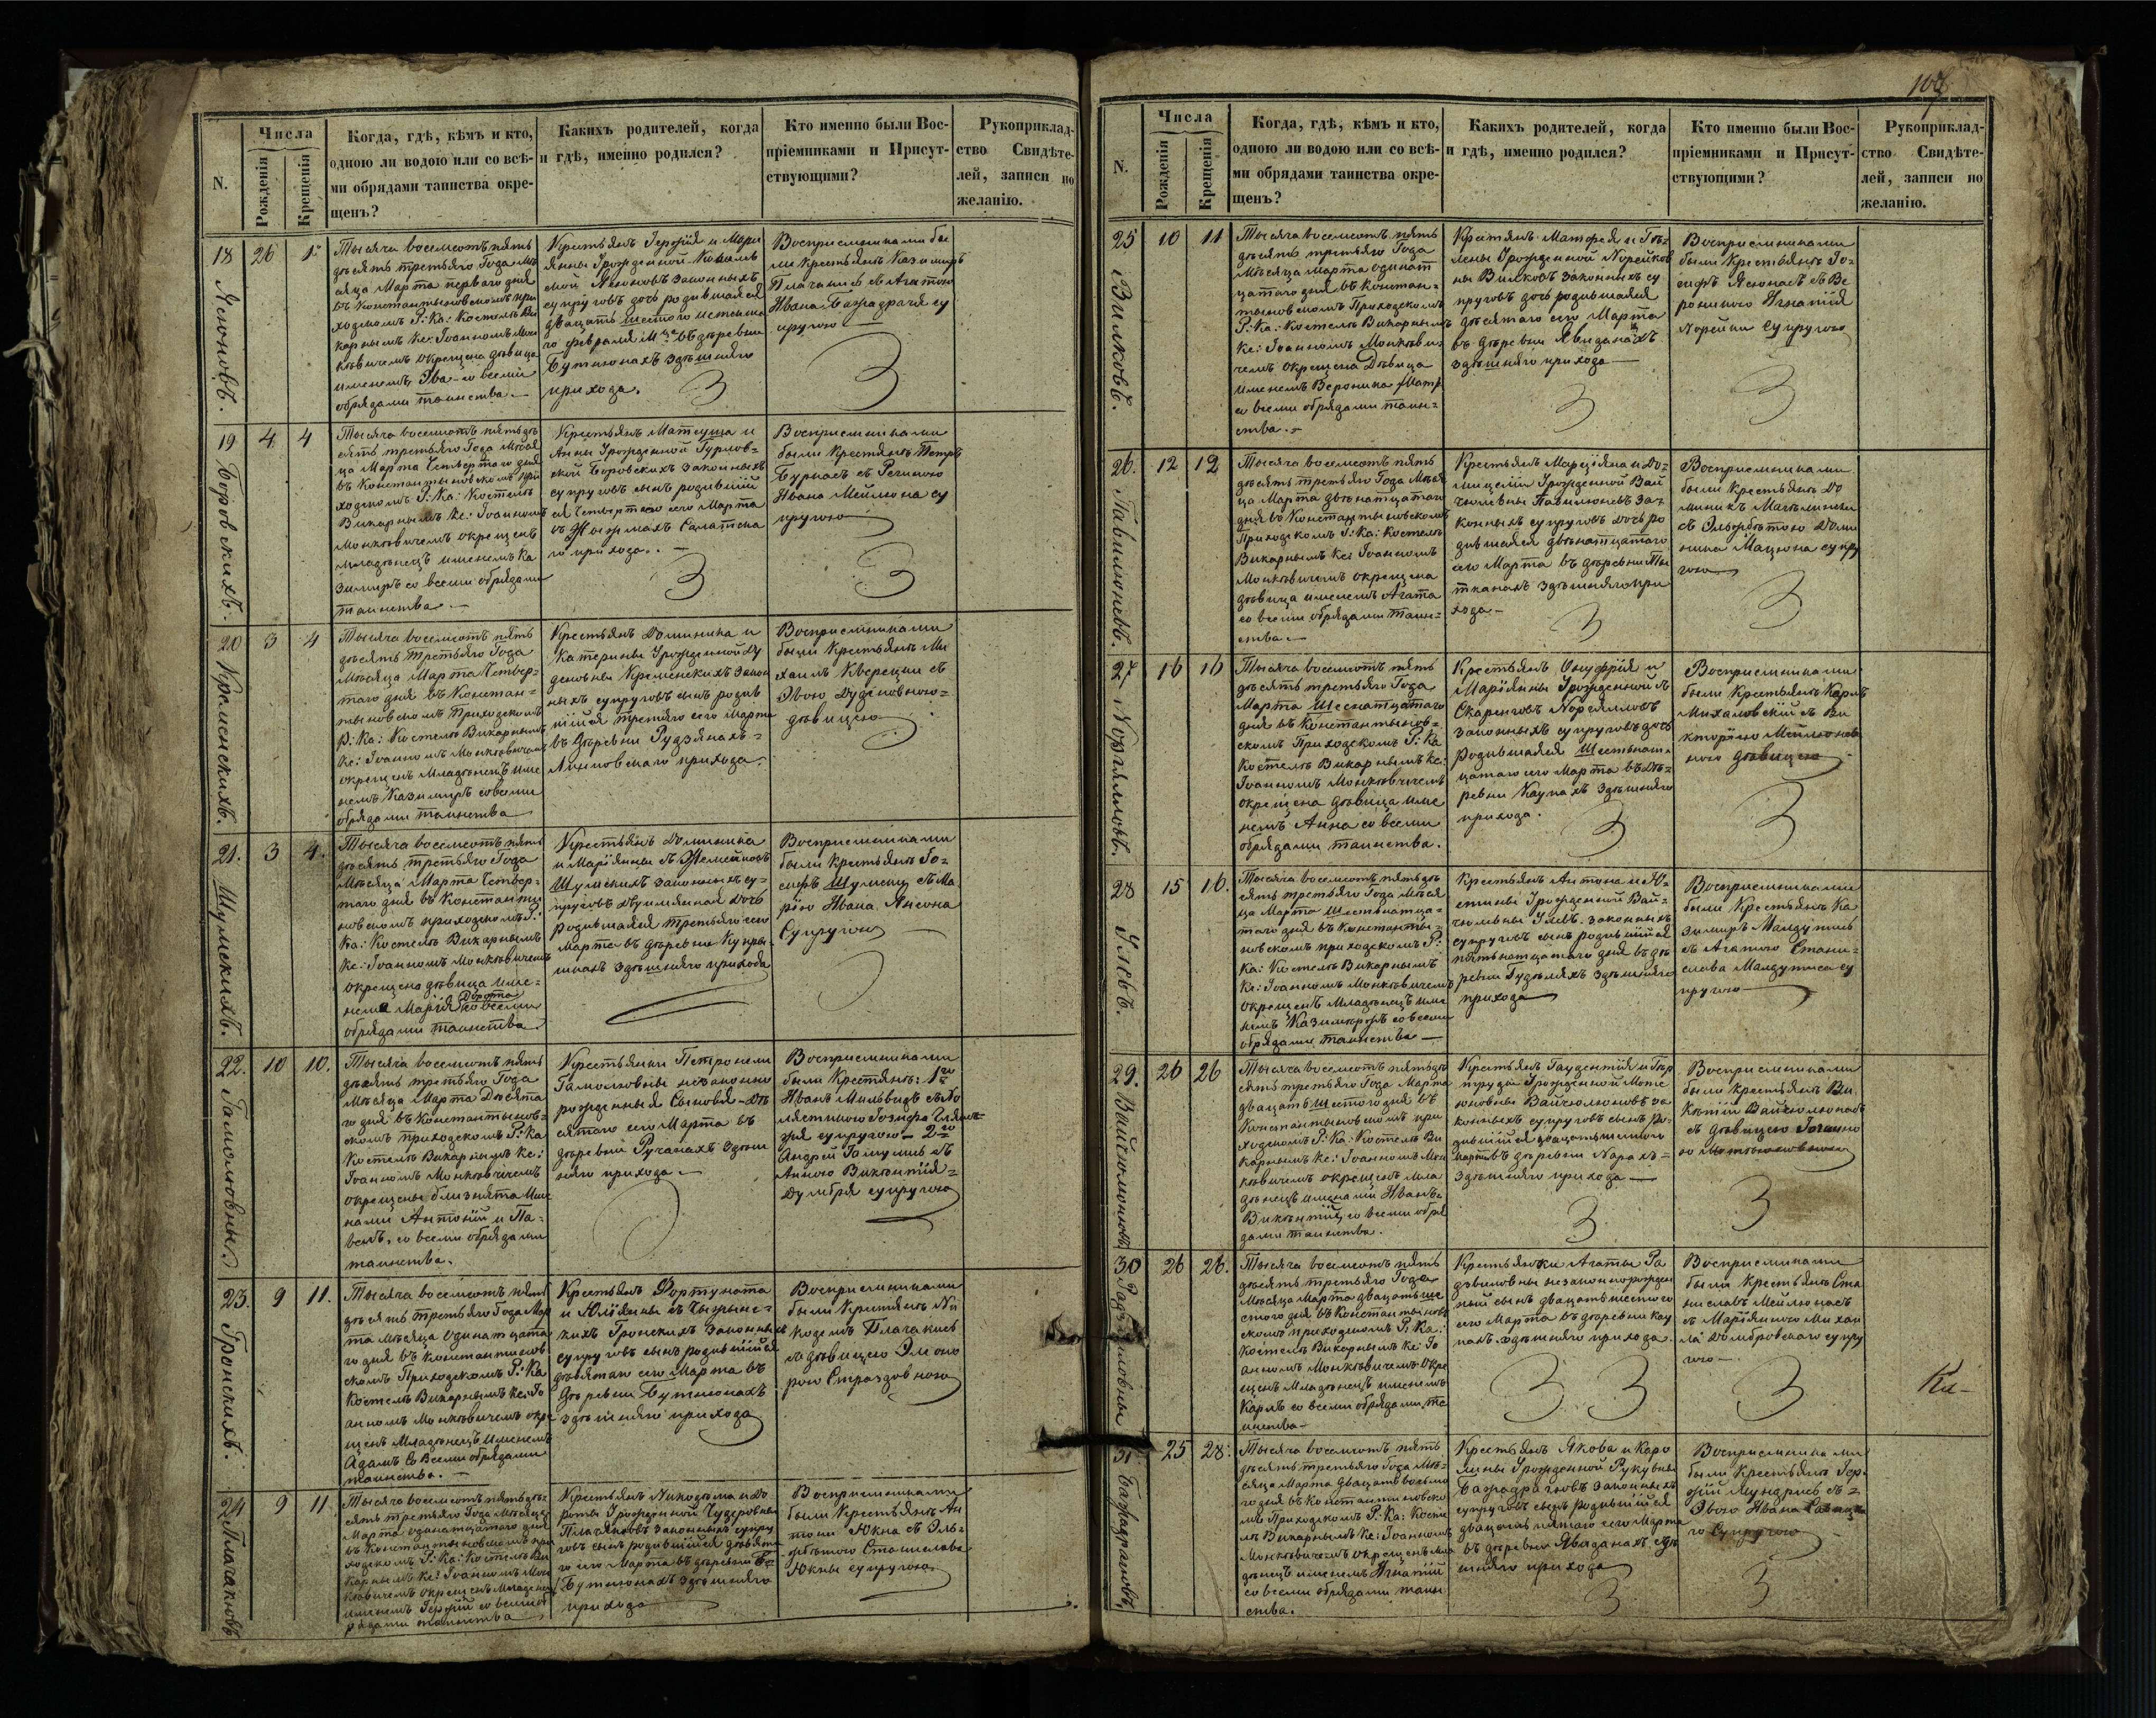 106
N.
Числа
Рожденія
Крещенія
Когда, гдѣ, кѣмъ и кто,
одною ли водою или со всѣ-
ми обрядами таинства окре-
щенъ?
Какихъ родителей, когда
и гдѣ, именно родился?
Кто именно были Вос-
пріемниками и Присут-
ствующими?
Рукоприклад-
ство Свидѣте-
лей, записи по
желанію.
18
26
1
Тысяча восемсотъ пять
десятъ третьяго Года мѣ
сяца Марта перваго дня
въ Константыновскомъ при
ходскомъ Р: Ка: Костелѣ Ви
карнымъ Кс: Іоанномъ Мон
кѣвичемъ окрещена дѣвица
именемъ Эва - со всеми
обрядами таинства.-
Крестьянъ Герфія и Мари
янны Урожденной
законныхъ
супруговъ дочь родившаяся
двацать шестого истекша
го февраля М-ца въ деревни
Бутнюнахъ здѣшняго
прихода.
Восприемниками бы
ли Крестьянъ Казимиръ
Плачакис съ Агатою
Ивана Бажадрагя су
пругою
19
4
4
Боровскихъ.
Тысяча восемсотъ пятьде
сятъ третьяго Года Мѣся
ца Марта Четвертого дня
въ Константыновскомъ При
ходскомъ Р: Ка: Костелѣ
Викарнымъ Кс: Іоанномъ
Монкѣвичемъ окрещенъ
младѣнецъ именемъ Ка
зимиръ со всеми обрядами
таинства -
Крестьянъ Матеуша и
Анны Урожденной Гурнов-
ской Боровскихъ законныхъ
супруговъ сынъ родивший
ся Четвертого сего Марта
го прихода. -
Восприемниками
были Крестянъ Петръ
Бурнасъ съ Региною
Ивана Мейлюна су
пругою
20
3
4
Кременскихъ.
Тысяча восемсотъ пять
десятъ Третьяго Года
Мѣсяца Марта Четвер-
таго дня въ Констан-
тыновскомъ Приходскомъ
Р: Ка: Костелѣ Викарнымъ
Кс: Іоанномъ Монкѣвичемъ
окрещенъ младѣнецъ име
немъ Казимиръ со всеми
обрядами таинства
Крестьянъ Доминика и
Катерины Урожденной Ду
деновны Кременскихъ закон
ныхъ супруговъ сынъ родив
шийся третяго сего Марта
въ деревни Рудзянахъ -
прихода.
Восприемниками
были Крестьянъ Ми
хаилъ Кверецки съ
Эвою Дудѣновною-
дѣвицею
21.
3
4.
Шумскихъ.
Тысяча восемсотъ пять
десятъ третьяго Года
Мѣсяца Марта Четвер-
таго дня въ Константы
новскомъ приходскомъ Р:
Ка: Костелѣ Викарнымъ
Кс: Іоанномъ Монкѣвичемъ
окрещена дѣвица име-
нема Марія Дорота со всеми
обрядами таинства.
Крестьянъ Доминика
и Маріянны съ
Шумскихъ законныхъ су-
пруговъ двуимянная дочь
родившаяся третьяго сего
Марта въ деревни Купры-
шкахъ здѣшняго прихода
Восприемниками
были Крестьянъ Іо-
сифъ Шумски съ Ма
рією Ивана Янсона
Супругою
22.
10
10.
Гамоловны
Тысяча восемсотъ пять
десятъ третьяго Года
Мѣсяца Марта Десята
го дня въ Константынов-
скомъ приходскомъ Р: Ка
Костелѣ Викарнымъ Кс:
Іоанномъ Монкѣвичемъ
окрещены близнята Име
нами Антоній и Па-
велъ, со всеми обрядами
таинства.
Крестьянки Петронели
Гамоловны незаконно
рожденныя Сыновя - де
сятого сего Марта въ
деревни Ручанахъ здѣш
няго прихода -
Восприемниками
были Крестянъ: 1го
Иванъ Мильвидъ съ Бо
супругою - 2го
Андрей Гомушис съ
Анною Викентія-
Думбря супругою
23.
9
11.
Гронскихъ.
Тысяча восемсотъ пять
десятъ третьяго Года Мар
та мѣсяца Одинатцата
го дня въ Константинов
скомъ Приходскомъ Р: Ка
Костелѣ Викарнымъ Кс: Іо
анномъ Монкѣвичемъ окре
щенъ Младѣнецъ именемъ
Адамъ со всеми обрядами
таинства. -
Крестьянъ Фортуната
и Юліянны съ
Гронскихъ законныхъ
супруговъ сынъ родившийся
девятаго сего Марта въ
деревни Бутнюнахъ
здѣшняго прихода
Восприемниками
были Крестянъ Ни
кодемъ Плачакись
съ дѣвицею Элеоно
рою Страздовною
24
9
11
Плачаковъ
Тысяча восемсотъ пятьде-
сятъ третьяго Года Мѣсяца
Марта одинатцатаго дня
въ Константыновскомъ при
ходскомъ Р: Ка: Костелѣ Ви
карнымъ Кс: Іоанномъ Мон
кѣвичемъ окрещенъ Младенецъ
именемъ Герфій со всеми об
рядами таинства
Крестьянъ Никодѣма и До
роты Урожденной
Плачаковъ законныхъ супру
говъ сынъ родившийся девята
го сего Марта въ деревни
Бутнюнахъ здѣшняго
прихода
Восприемниками
были Крестьянъ Ан
тони Юкна съ Эль-
жбѣтою Станислава
Юкны супругою
N.
Числа
Рожденія
Крещенія
Когда, гдѣ, кѣмъ и кто,
одною ли водою или со всѣ-
ми обрядами таинства окре-
щенъ?
Какихъ родителей, когда
и гдѣ, именно родился?
Кто именно были Вос-
пріемниками и Присут-
ствующими?
Рукоприклад-
ство Свидѣте-
лей, записи по
желанію.
25
10
11
Вилковъ.
Тысяча восемсотъ пять
десятъ третьяго Года
Мѣсяца Марта одинат
цатого дня въ Констан-
тыновскомъ Приходскомъ
Р: Ка: Костелѣ Викарнымъ
Кс: Іоанномъ Монкѣви-
чемъ окрещена Дѣвица
именемъ Вероника
со всеми обрядами таин-
ства.-
Крестянъ Матфея и Гѣ-
лены Урожденной Норейков
ны Вилковъ законныхъ су
пруговъ дочь родившаяся
десятаго сего Марта
въ деревни Явиданахъ
здѣшняго прихода -
Восприемниками
были Крестьянъ Іо-
сифъ Ясюнасъ съ Ве
роникою Игнатія
Норейки Супругою
26.
12
12
Павилюнєвъ.
Тысяча восемсотъ пять
десятъ третьяго Года Мѣся
ца Марта двѣнатцатаго
дня во Константыновскомъ
Приходскомъ Р: Ка: Костелѣ
Викарнымъ Кс: Іоанномъ
Монкѣвичемъ окрещена
дѣвица именемъ Агата
со всеми обрядами таин-
ства -
Крестьянъ Марціяна и До-
мицели Урожденной Вай
за-
конныхъ супруговъ дочь ро
дившаяся двѣнатцатаго
сего Марта въ деревни
здѣшняго при
хода -
Восприемниками
были Крестьянъ До
миникъ
съ Эльжбѣтою Доми
ника Мацюна супру
гою
27
16
16
Норгяловъ.
Тысяча восемсотъ пять
десятъ третьяго Года
Марта Шеснатцатаго
дня въ Константынов-
скомъ Приходскомъ Р: Ка
Костелѣ Викарнымъ Кс:
Іоанномъ Монкѣвичемъ
окрещена дѣвица име
немъ Анна со всеми
обрядами таинства.
Крестьянъ Онуфрія и
Маріянны Урожденной съ
законныхъ супруговъ дочь
родившаяся Шестьнат-
цатаго сего Марта въ де-
ревни Каунахъ здѣшняго
прихода.
Восприемниками
были Крестьянъ Карлъ
Михаловскій съ Ви
кторією Мейлюнов
ною дѣвицею
28
15
16.
Улєвъ.
Тысяча восемсотъ пятьде
сятъ третьяго Года Мѣся
ца Марта Шестьнатца-
таго дня въ Константы-
новскомъ приходскомъ Р:
Ка: Костелѣ Викарнымъ
Кс: Іоанномъ Монкѣвичемъ
окрещенъ Младенецъ име
немъ Казимиръ со всеми
обрядами таинства -
Крестьянъ Антона и Ю-
стины Урожденной Вай-
законныхъ
супруговъ сынъ родившийся
пятьнатцатого дня въ де
ревни Гуделяхъ здѣшняго
прихода
Восприемниками
были Крестьянъ Ка
зимиръ Малдутис
съ Агатою Стани-
слава Малдутиса су
пругою
29.
26
26
Тысяча восемсотъ пятьде
сятъ третьяго Года Марта
двацать шестого дня въ
Константыновскомъ при
ходскомъ Р: Ка: Костелѣ Ви
карнымъ Кс: Іоанномъ Мон
кѣвичемъ окрещенъ мла
денецъ именами Иванъ
Викентій, со всеми обря
дами таинства.
Крестьянъ Гауденція и Гер
труды Урожденной
за
конныхъ супруговъ сынъ ро-
дившийся двацатьшестого
марта въ деревни Нарахъ -
здѣшняго прихода -
Восприемниками
были Крестьянъ Ви
кентій
съ дѣвицею
30
26
26.
Тысяча восемсотъ пять
десятъ третьяго Года
Мѣсяца Марта двацать ше
стого дня въ Константынов
скомъ приходскомъ Р: Ка:
Костелѣ Викарнымъ Кс: Іо
анномъ Монкѣвичемъ Окре
щенъ Младѣнецъ именемъ
Карлъ со всеми обрядами та
инства -
Крестьянки Агаты Ра
дзвиловны незаконнорожден
ный сынъ двацатьшестого
сего Марта въ деревни Кау
нахъ здѣшняго прихода.
Восприемниками
были Крестьянъ Ста
ниславъ Мейлюнасъ
съ Маріянною Михаи
ла Домбровскаго супру
гою -
31
25
28.
Бажадраговъ.
Тысяча восемсотъ пять
десятъ третьяго Года Мѣ-
сяца Марта Двацать восьмо
го дня въ Константиновско
мъ Приходскомъ Р: Ка: Косте
лѣ Викарнымъ Кс: Іоанномъ
Монкѣвичемъ окрещенъ мла
денецъ именемъ Игнатій
со всеми обрядами таин
ства.
Крестьянъ Якова и Каро
лины Урожденной
законныхъ
супруговъ сынъ родившийся
двацать пятаго сего Марта
въ деревни Явиданахъ здѣ
шняго прихода
Восприемниками
были Крестьянъ Гер-
фій Мундрис съ -
Эвою Ивана
го Супругою